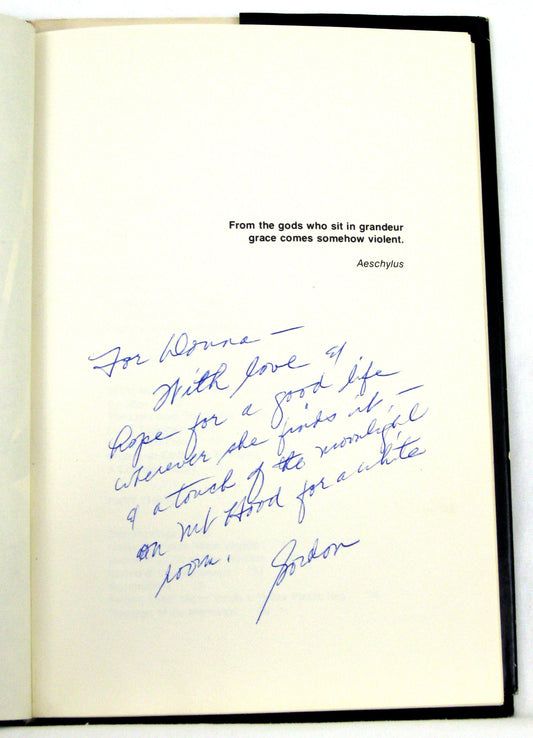 From the gods who sit in grandeur
grace comes somehow violent.
Aeschylus
For Donna —
With love &
hope for a good life
wherever she finds it, —
& a touch of the moonlight
on Mt Hood for a white
room.
Gordon